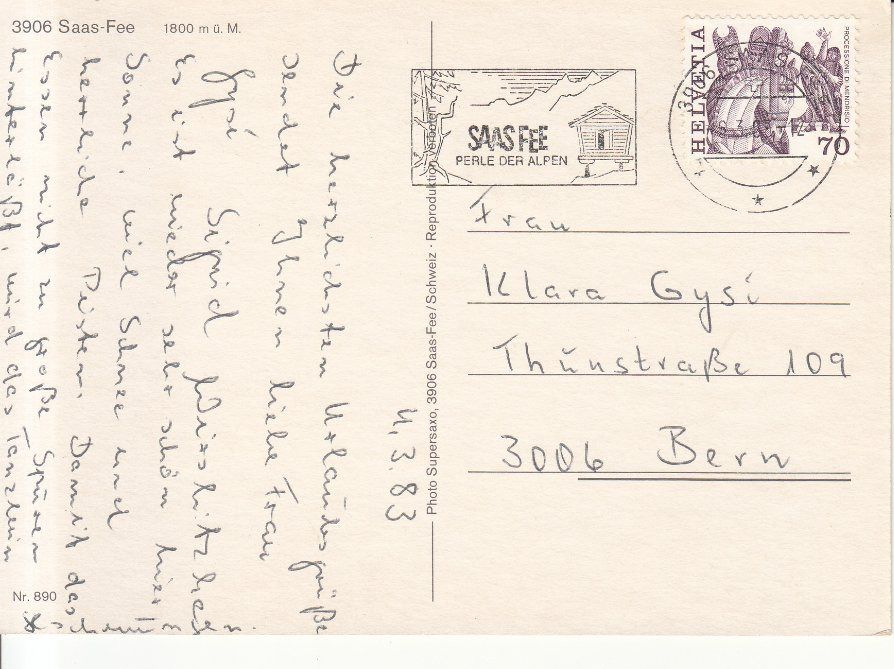 3906 Saas-Fee 1800 m ü. M.
4.3.83
Die herzlichsten Urlaubsgrüße
sendet Ihnen liebe Frau
Gysi Sigrid
Es ist wieder sehr schön hier
Sonne, viel Schnee und
herrliche Pisten. Damit das
Essen nicht zu große Spuren
hinterläßt, wird das Tanzbein
Nr. 890
Photo Supersaxo, 3906 Saas-Fee/Schweiz · Reproduktion verboten
SAAS FEE
PERLE DER ALPEN
HELVETIA
PROCESSIONE DI MENDRISIO
70
Frau
Klara Gysi
Thunstraße 109
3006 Bern